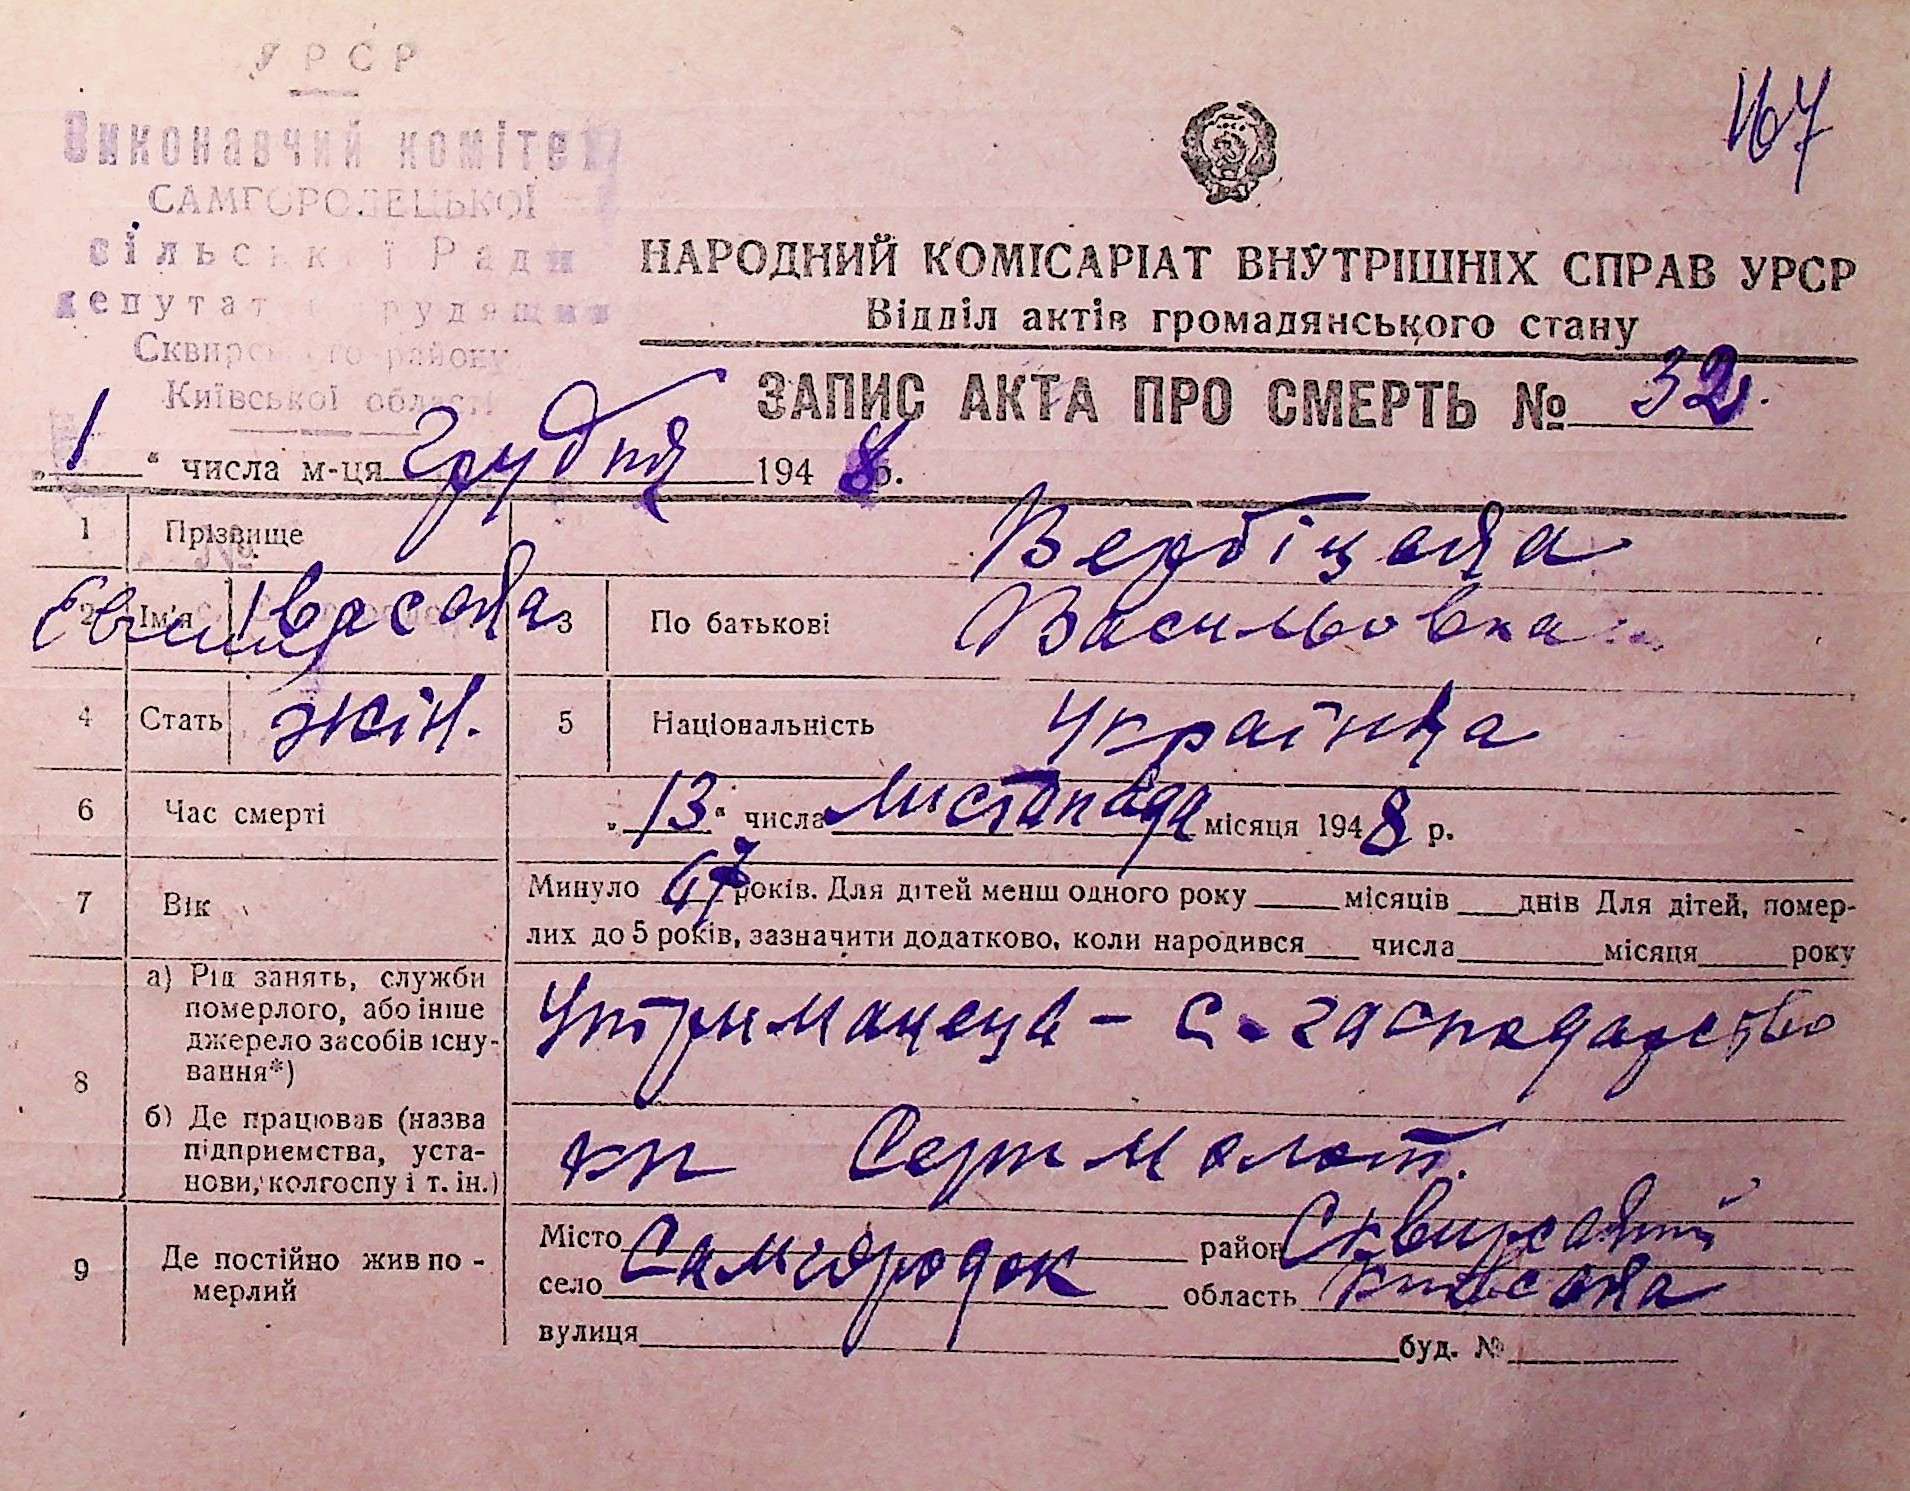 УРСР
Виконавчий комітет
САМГОРОДЕЦЬКОЇ
сільської Ради
депутатів трудящих
Сквирського району
Київської області
167
НАРОДНИЙ КОМІСАРІАТ ВНУТРІШНІХ СПРАВ УРСР
Відділ актів громадянського стану
ЗАПИС АКТА ПРО СМЕРТЬ № 32.
„ 1 “ числа м-ця грудня 1948 р.
1 Прізвище Вербіцкая
2 Ім'я Івасокая 3 По батькові Васильовна
4 Стать жін. 5 Національність Українка
6 Час смерті „ 13 “ числа листапада місяця 1948 р.
7 Вік Минуло 67 років. Для дітей менш одного року місяців днів Для дітей, помер-
лих до 5 років, зазначити додатково, коли народився числа місяця року
8 а) Рід занять, служби
померлого, або інше
джерело засобів існу-
вання*)
Утриманеца - с. гасподарство
б) Де працював (назва
підприємства, уста-
нови, колгоспу і т. ін.)
кп Серп молот.
9 Де постійно жив по-
мерлий
Місто район Сквирский
село Самгородок область Київская
вулиця буд. №